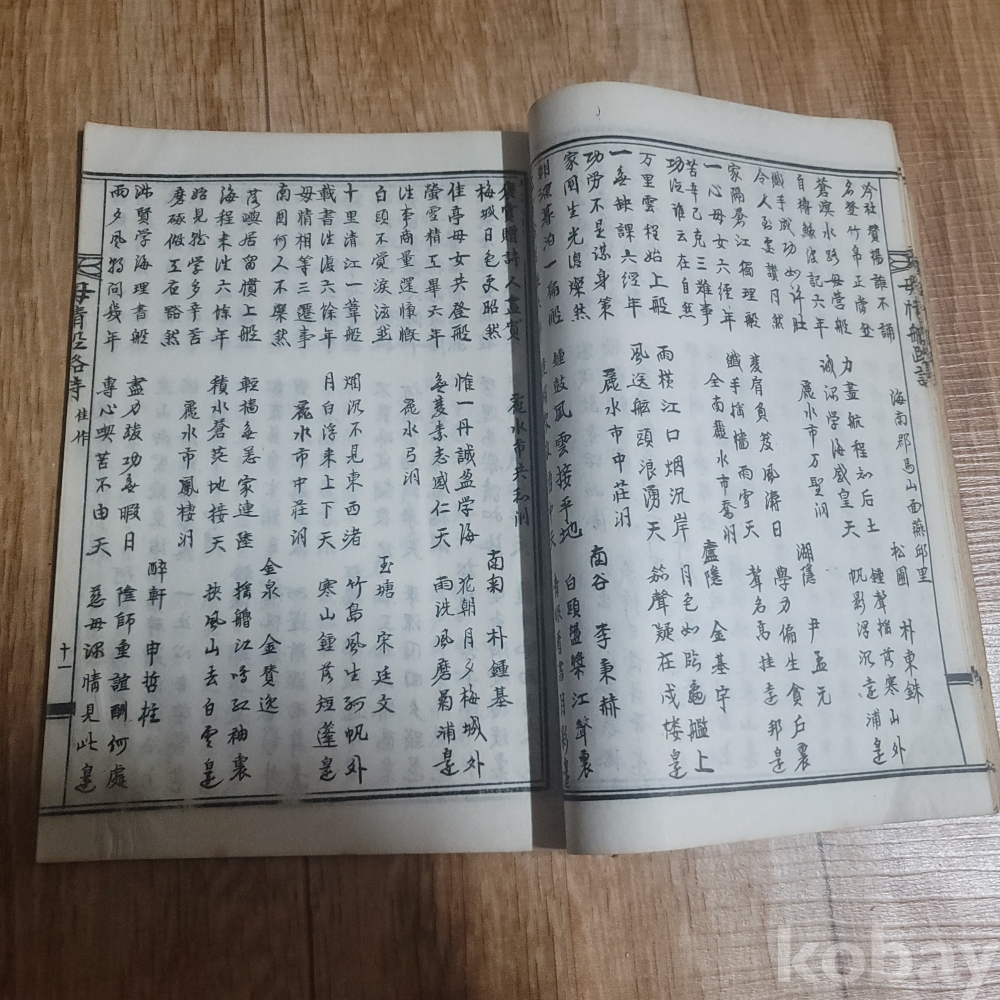 海南郡馬山面燕邱里 松圃 朴東銖
吟社贊揚誰不誦 力盡航程知后土 鍾聲 落寒山外
名登竹帛正當然 誠深学海感皇天 帆影浮沉遠浦邊
麗水市万聖洞 湖隱 尹孟元
蒼溟水路母營船 負笈風濤日 学力偏生貪戶裏
自轉鯨波記六年 纖手 檣雨雪天 聲名高挂遠邦邊
纖手成功如許壯
令人感歎讚月然
全南麗水市喬洞 盧隱 金基宇
家隔蒼江獨理船 雨橫江口烟沉岸 月色如臨龜艦上
一心母女六經年 風送舷頭浪湧天 笳聲疑在戍楼邊
苦辛已克三難事
功從誰云在自然
麗水市中莊洞 南谷 李秉赫
万里雲程始上船 鍾鼓風雲接平地 白頭 槳江聲裏
一無缺課六經年
功労不是謀身策
家国生光復燦然
朝深暮泊一扁船
褒賞贈詩人盡賓
梅城日色更昭然
麗水市共和洞 南南 朴鍾基
佳亭母女共登船 惟一丹誠盈学海 花朝月夕梅城外
螢雪精工畢六年 無變素志感仁天 雨洗風磨菊浦邊
注李商量還慷慨
白頭不覚淚泫然
麗水弓洞 玉塘 宋廷文
十里清江一葦船 烟沉不見東西渚 竹島風生孤帆外
載書往復六餘年 月白浮来上下天 寒山鍾落短蓬邊
母情相等三遷事
南国何人不樂然
麗水市中莊洞 金泉 金賛逸
茂嶼居留慣上船 輕檣無恙家連陸 搖艪江鳴紅袖裏
海程来往六餘年 積水蒼茫地接天 扶風山去白雲邊
始見於学多辛苦
磨琢做工石豁然
麗水市鳳棲洞 醉軒 申哲柱
洙賢学海理書船 盡力護功無暇日 陰師重誼酬何處
雨夕風朝问幾年 專心喫苦不由天 慈母深情見此邊
母情船路詩 佳作 十一